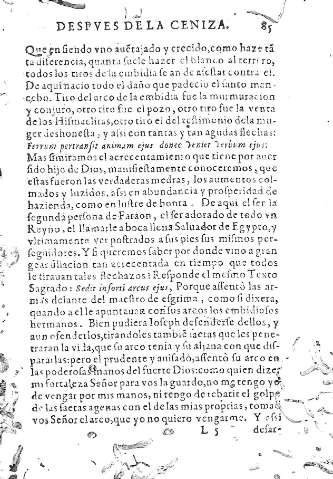 DESPVES DE LA CENIZA. 85
Que en siendo vno auentajado y crecido, como haze tã
ta diferencia, quanta suele hazer el blanco al terrero,
todos los tiros de la embidia se an de assestar contra el.
De aqui nacio todo el daño que padecio el santo man-
cebo. Tiro del arco de la embidia fue la murmuracion
y conjuro, otro tiro fue el pozo, otro tiro fue la venta
de los Hismaelitas, otro tiro el del testimonio dela mu
ger deshonesta, y assi con tantas y tan agudas flechas:
Ferrum pertransijt animam ejus donec veniret verbum ejus:
Mas si miramos el acrecentamiento que tiene por auer
sido hijo de Dios, manifiestamente conoceremos, que
estas fueron las verdaderas medras, los aumentos col-
mados y luzidos, assi en abundancia y prosperidad de
hazienda, como en lustre de honra. De aqui el ser la
segunda persona de Faraon, el ser adorado de todo vn
Reyno, el llamarle a boca llena Saluador de Egypto, y
vltimamente ver postrados a sus pies sus mismos per-
seguidores. Y si queremos saber por donde vino a gran
gear dilacion tan acrecentada en tiempo que todos
le tirauan tales flechazos? Responde el mesmo Texto
Sagrado: Sedit in forti arcus ejus, Porque assentò las ar-
mas delante del maestro de esgrima, como si dixera,
quando a el le apuntauan con sus arcos los embidiosos
hermanos. Bien pudiera Ioseph defenderse dellos, y
aun ofenderlos, tirandoles tambiẽ saetas que les pene-
traran la vida, que su arco tenia y su aljaua con que dis-
pararlas: pero el prudente y auisado, assentò su arco en
las poderosas manos del fuerte Dios: como quien dize,
mi fortaleza Señor para vos la guardo, no me tengo yo
de vengar por mis manos, ni tengo de rebatir el golpe
de las saetas agenas con el de las mias proprias, tomad
vos Señor el arco, que yo no quiero vengarme. Y assi
L 5 desar-